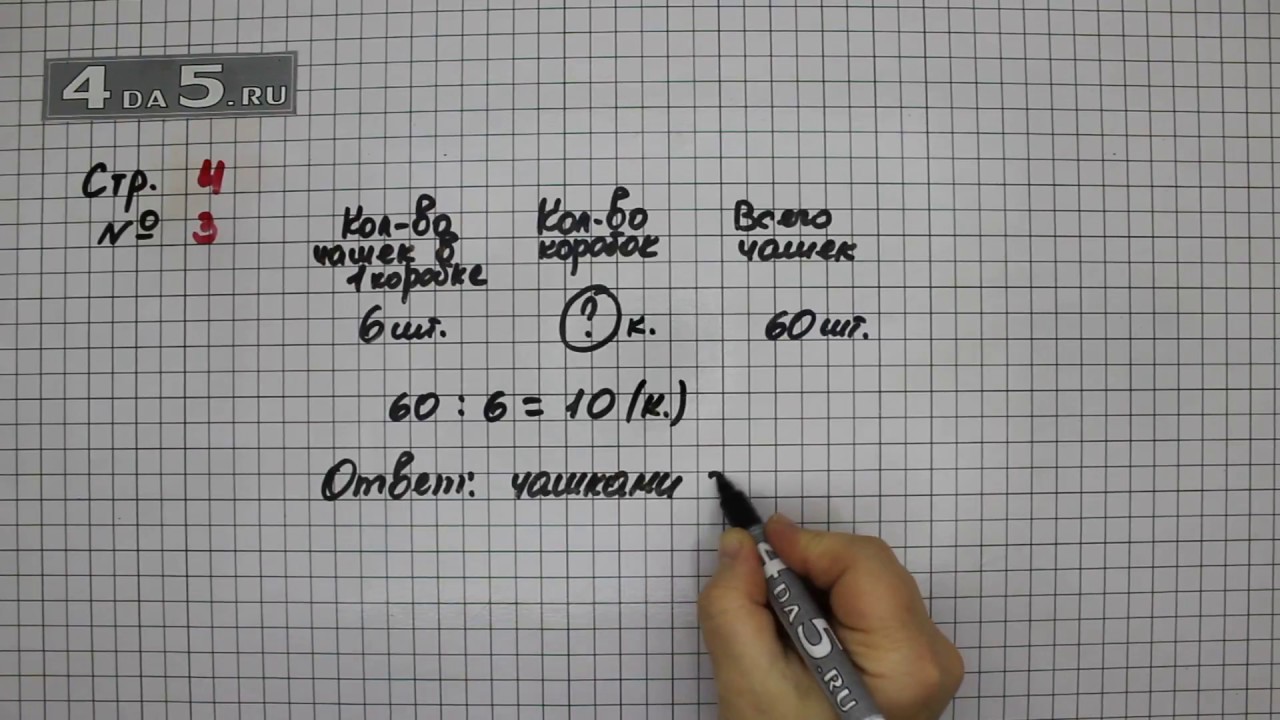 4DA5.RU
Стр. 4
№ 3
Кол-во чашек в 1 коробке
Кол-во коробок
Всего чашек
6 шт. ? к. 60 шт.
60 : 6 = 10 (к.)
Ответ: чашками
4DA5.RU